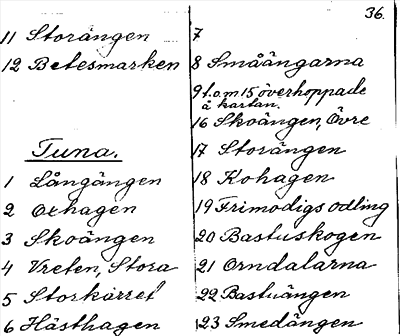 36.
11 Storängen
12 Betesmarken
Tuna.
1 Långängen
2 Oxhagen
3 Skoängen
4 Vreten, Stora
5 Storkärret
6 Hästhagen
7
8 Småängarna
9 t.o.m 15 överhoppade
å kartan.
16 Skoängen, Övre
17 Storängen
18 Kohagen
19 Frimodigs odling
20 Bastuskogen
21 Orndalarna
22 Bastuängen
23 Smedängen